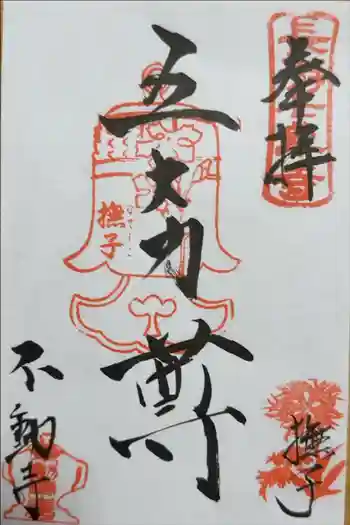 奉拝
五大力尊
撫子
撫子
不動寺